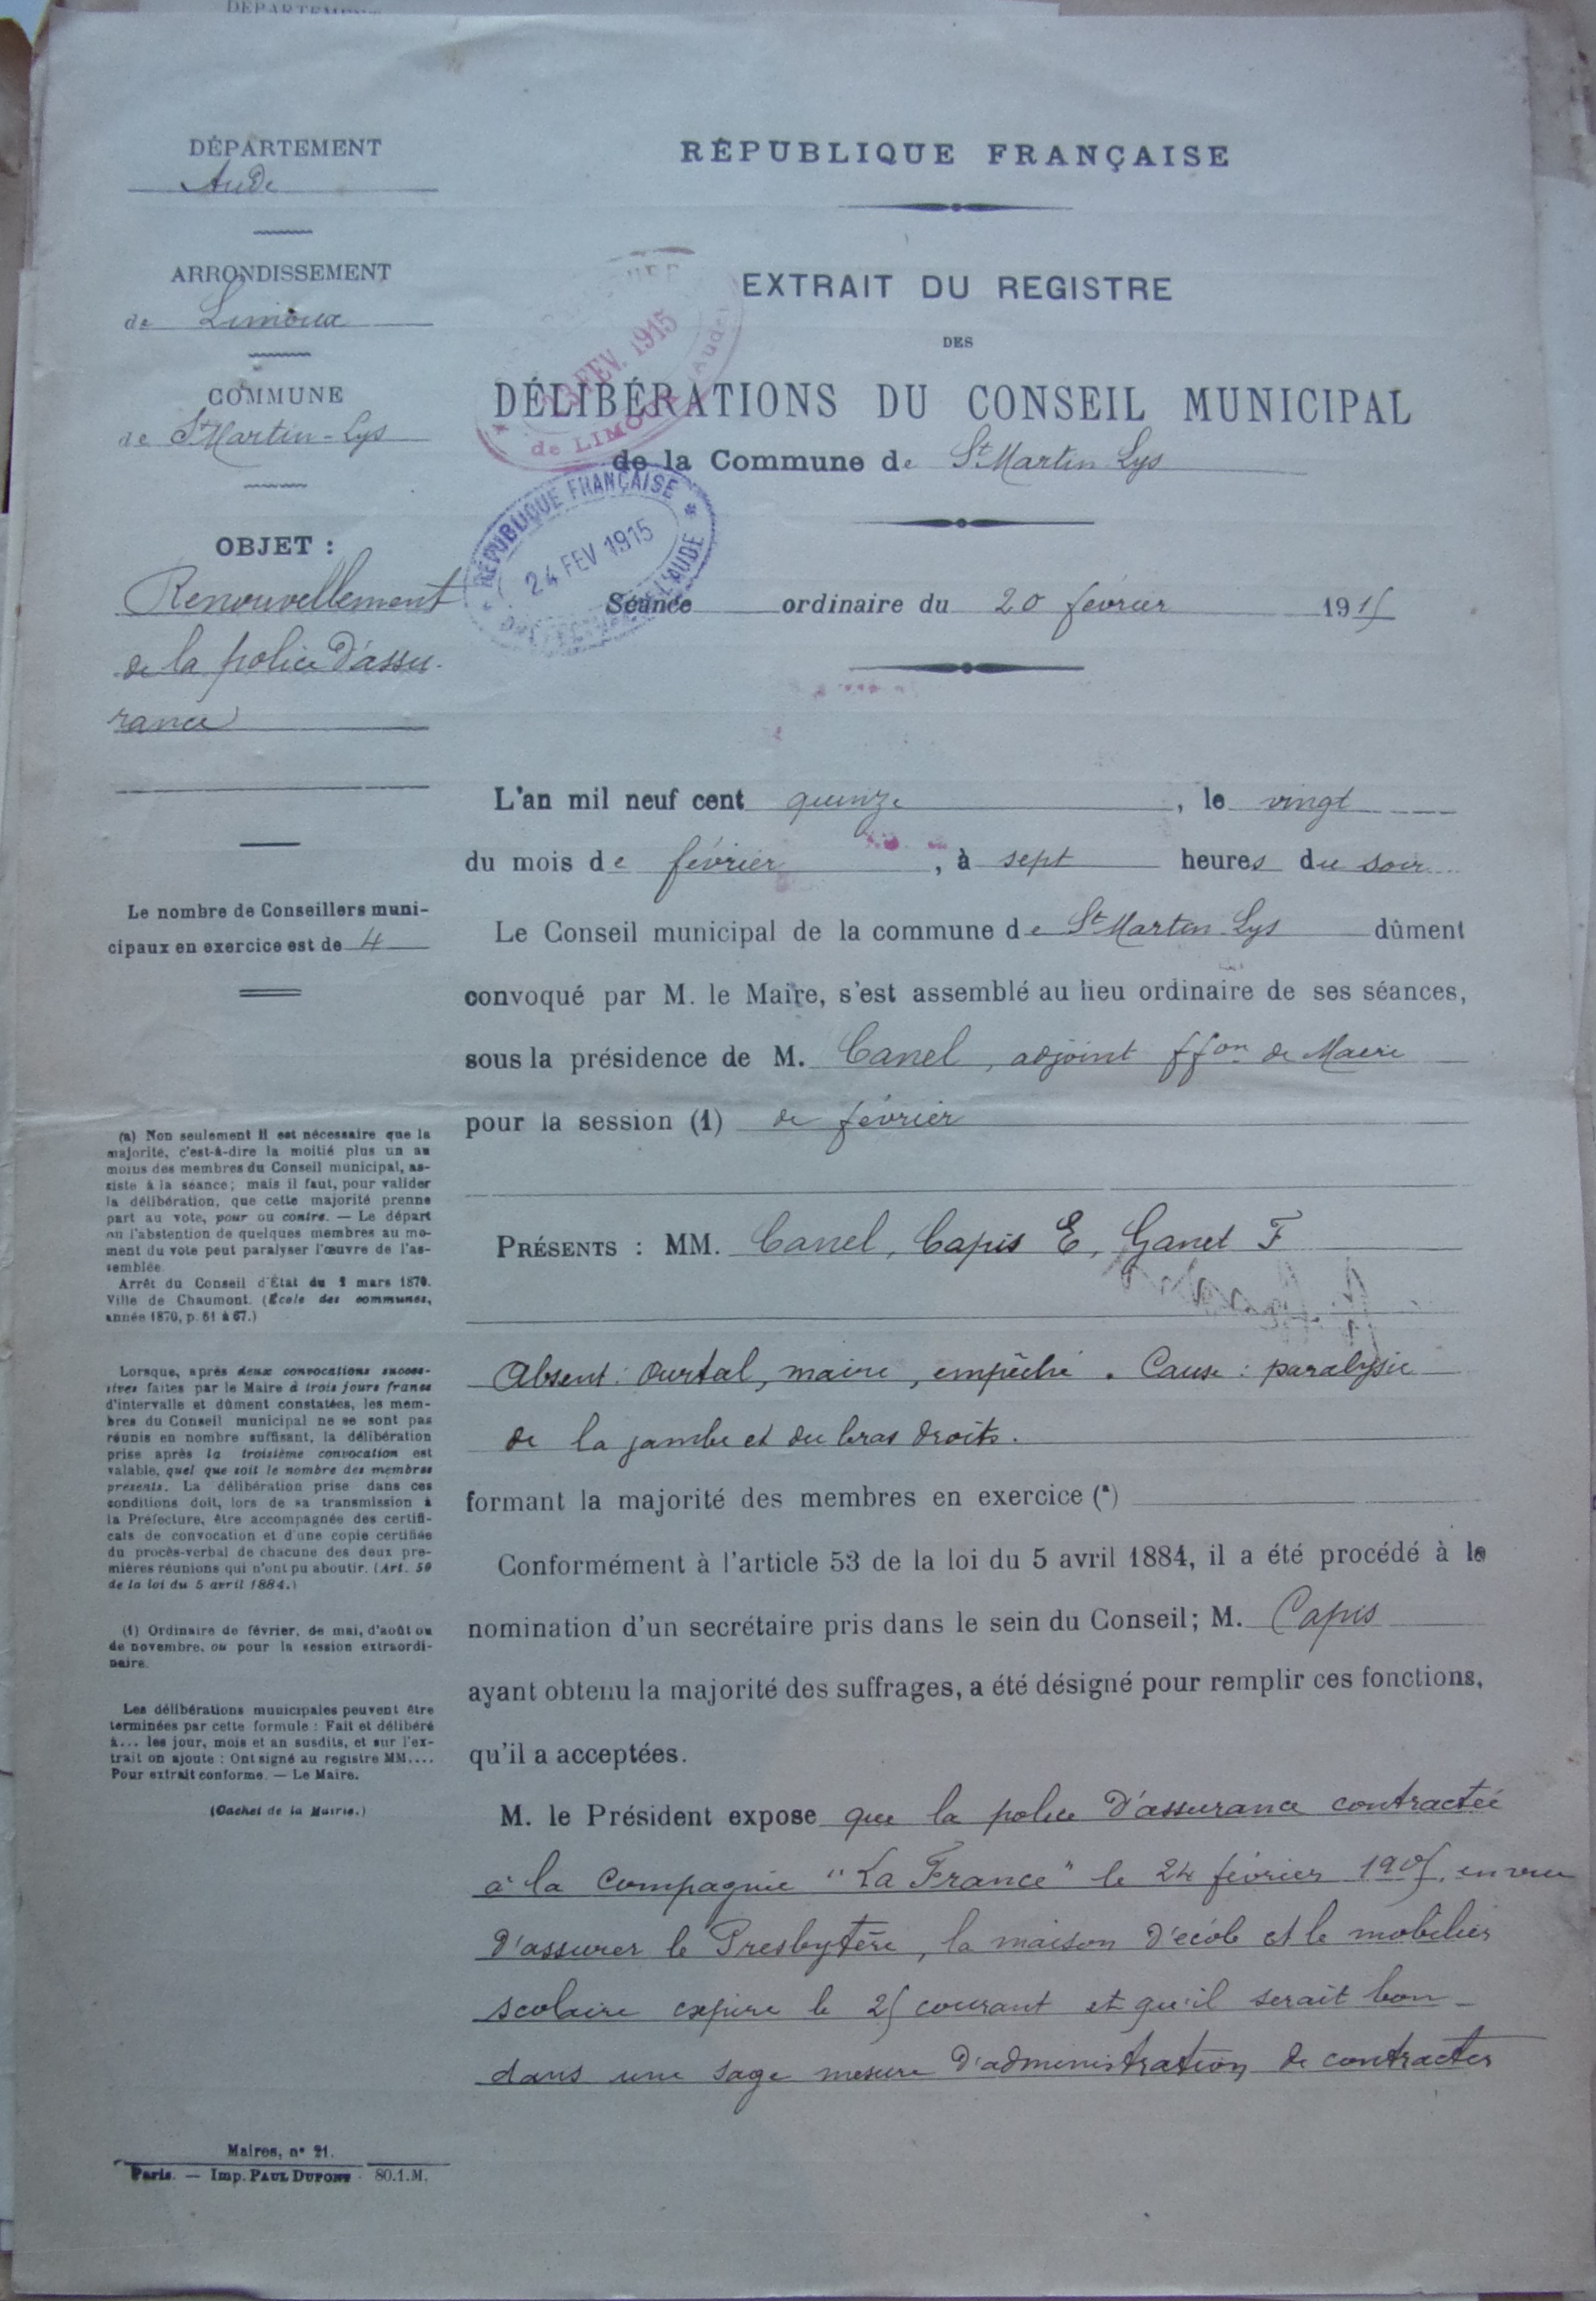 DÉPARTEMENT
Aude
ARRONDISSEMENT
de Limoux
COMMUNE
de St Martin-Lys
OBJET :
Renouvellement
de la police d'assu-
rance
Le nombre de Conseillers muni-
cipaux en exercice est de 4
(a) Non seulement il est nécessaire que la
majorité, c'est-à-dire la moitié plus un au
moins des membres du Conseil municipal, as-
siste à la séance; mais il faut, pour valider
la délibération, que cette majorité prenne
part au vote, pour ou contre. — Le départ
ou l'abstention de quelques membres au mo-
ment du vote peut paralyser l'œuvre de l'as-
semblée.
Arrêt du Conseil d'État du mars 1870.
Ville de Chaumont. (École des communes,
année 1870, p. 61 à 67.)
Lorsque, après deux convocations succes-
sives faites par le Maire à trois jours francs
d'intervalle et dûment constatées, les mem-
bres du Conseil municipal ne se sont pas
réunis en nombre suffisant, la délibération
prise après la troisième convocation est
valable, quel que soit le nombre des membres
présents. La délibération prise dans ces
conditions doit, lors de sa transmission à
la Préfecture, être accompagnée des certifi-
cats de convocation et d'une copie certifiée
du procès-verbal de chacune des deux pre-
mières réunions qui n'ont pu aboutir. (Art. 50
de la loi du 5 avril 1884.)
(1) Ordinaire de février, de mai, d'août ou
de novembre, ou pour la session extraordi-
naire.
Les délibérations municipales peuvent être
terminées par cette formule : Fait et délibéré
à... les jour, mois et an susdits, et sur l'ex-
trait on ajoute : Ont signé au registre MM....
Pour extrait conforme. — Le Maire.
(Cachet de la Mairie.)
Maires, n° 21.
Paris. — Imp. PAUL DUPONT 80.1.M.
RÉPUBLIQUE FRANÇAISE
EXTRAIT DU REGISTRE
DES
DÉLIBÉRATIONS DU CONSEIL MUNICIPAL
de la Commune de St Martin Lys
23 FEV. 1915
de LIMOUX (Aude)
RÉPUBLIQUE FRANÇAISE
24 FEV 1915
L'AUDE
Séance ordinaire du 20 février 1915
L'an mil neuf cent quinze, le vingt
du mois de février, à sept heures du soir
Le Conseil municipal de la commune de St Martin Lys dûment
convoqué par M. le Maire, s'est assemblé au lieu ordinaire de ses séances,
sous la présidence de M. Canel, adjoint ffon de Maire
pour la session (1) de février
PRÉSENTS : MM. Canel, Capis E, Ganet F
Absent : Ourtal, maire, empêché. Cause : paralysie
de la jambe et du bras droits.
formant la majorité des membres en exercice (a)
Conformément à l'article 53 de la loi du 5 avril 1884, il a été procédé à la
nomination d'un secrétaire pris dans le sein du Conseil; M. Capis
ayant obtenu la majorité des suffrages, a été désigné pour remplir ces fonctions,
qu'il a acceptées.
M. le Président expose que la police d'assurance contractée
à la Compagnie "La France" le 24 février 1905, en vue
d'assurer le Presbytère, la maison d'école et le mobilier
scolaire expire le 25 courant et qu'il serait bon
dans une sage mesure d'administration de contracter